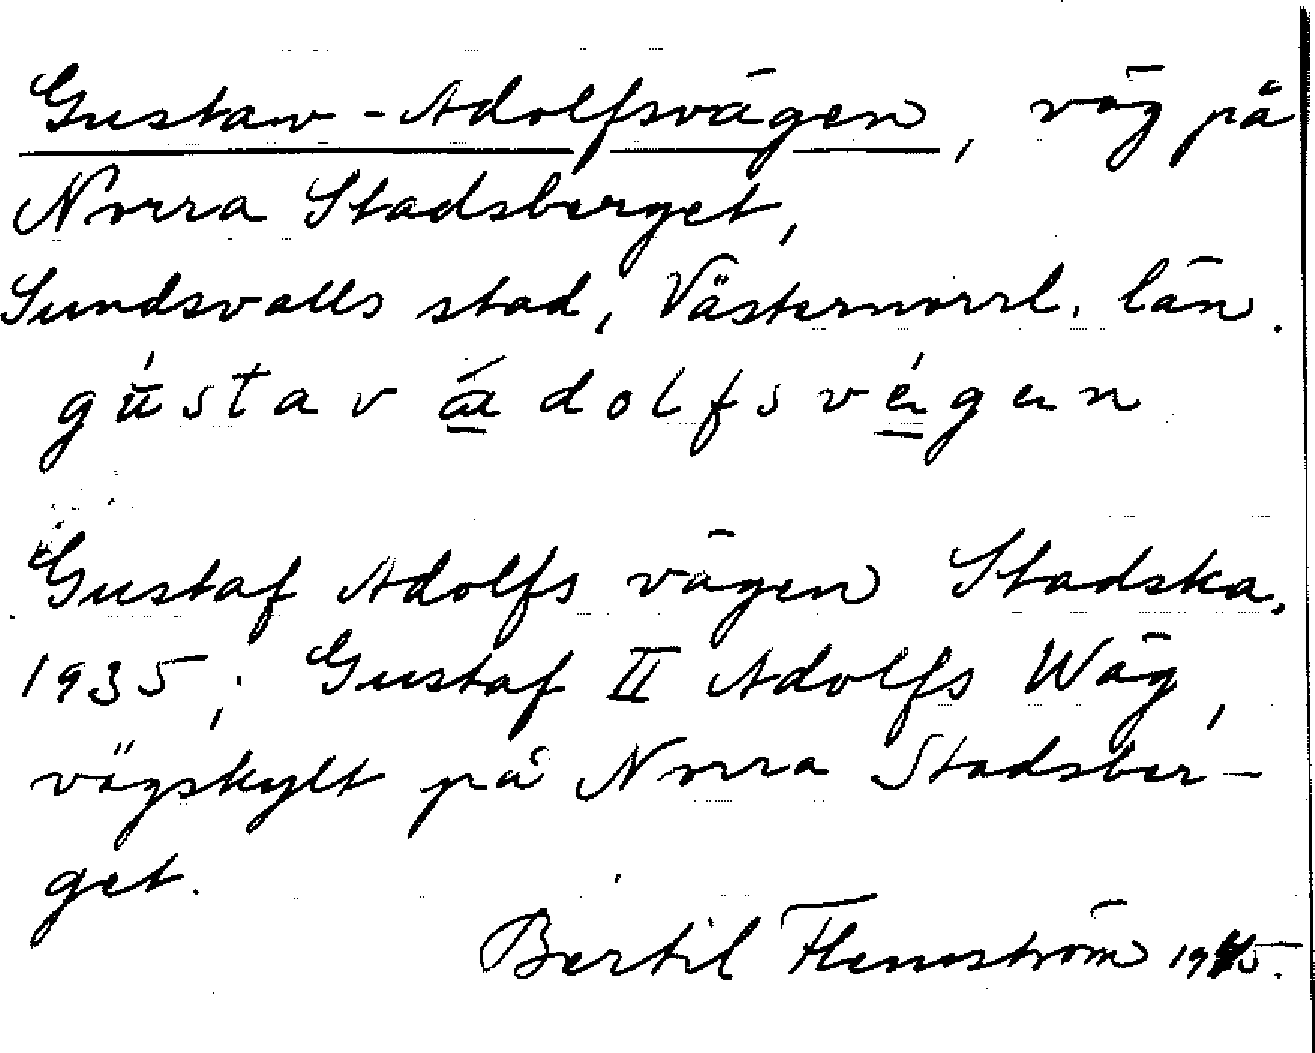 Gustav-Adolfsvägen, väg på
Norra Stadsberget,
Sundsvalls stad, Västernorrl. län.
gústav ádolfsvégen
Gustaf Adolfs vägen Stadska.
1935; Gustaf II Adolfs Wäg,
vägskylt på Norra Stadsber-
get.
Bertil Flemström 1945.